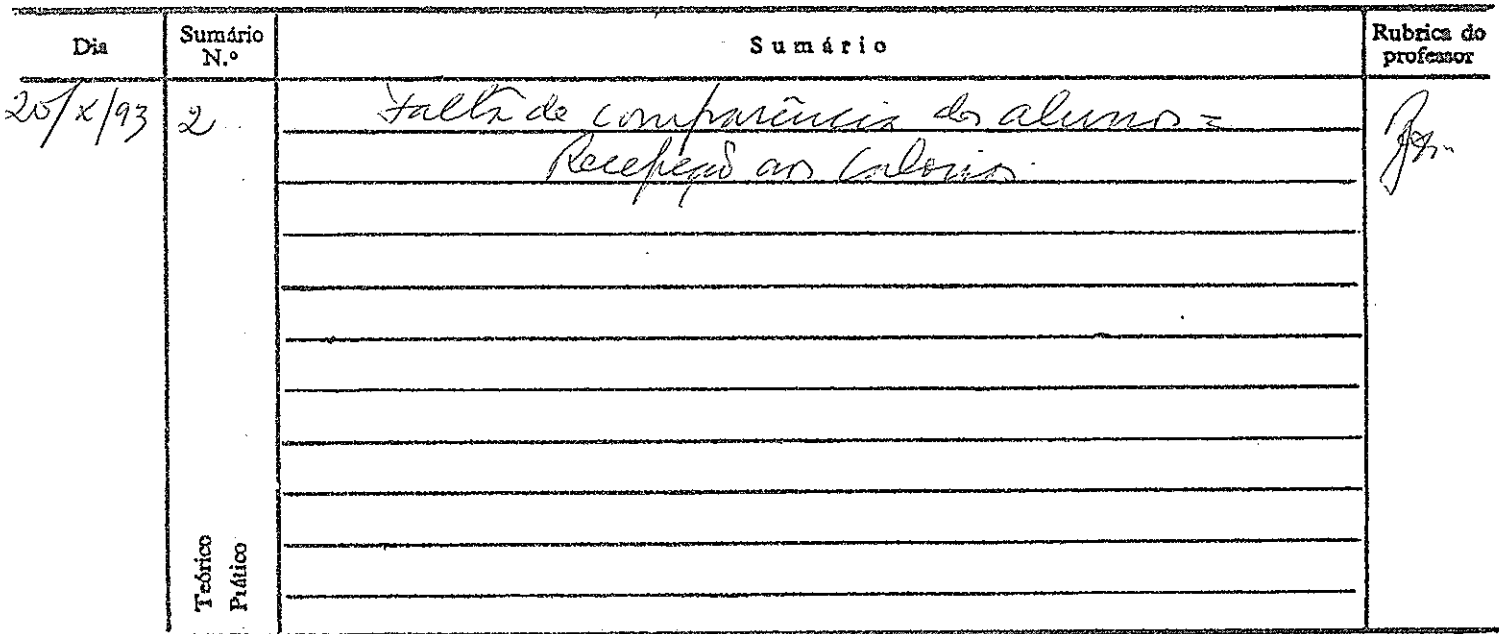 Dia
Sumário N.º
Sumário
Rubrica do professor
/X/93
2
Falta de comparência dos alunos =
Recepção aos Caloiros.
Teórico
Prático